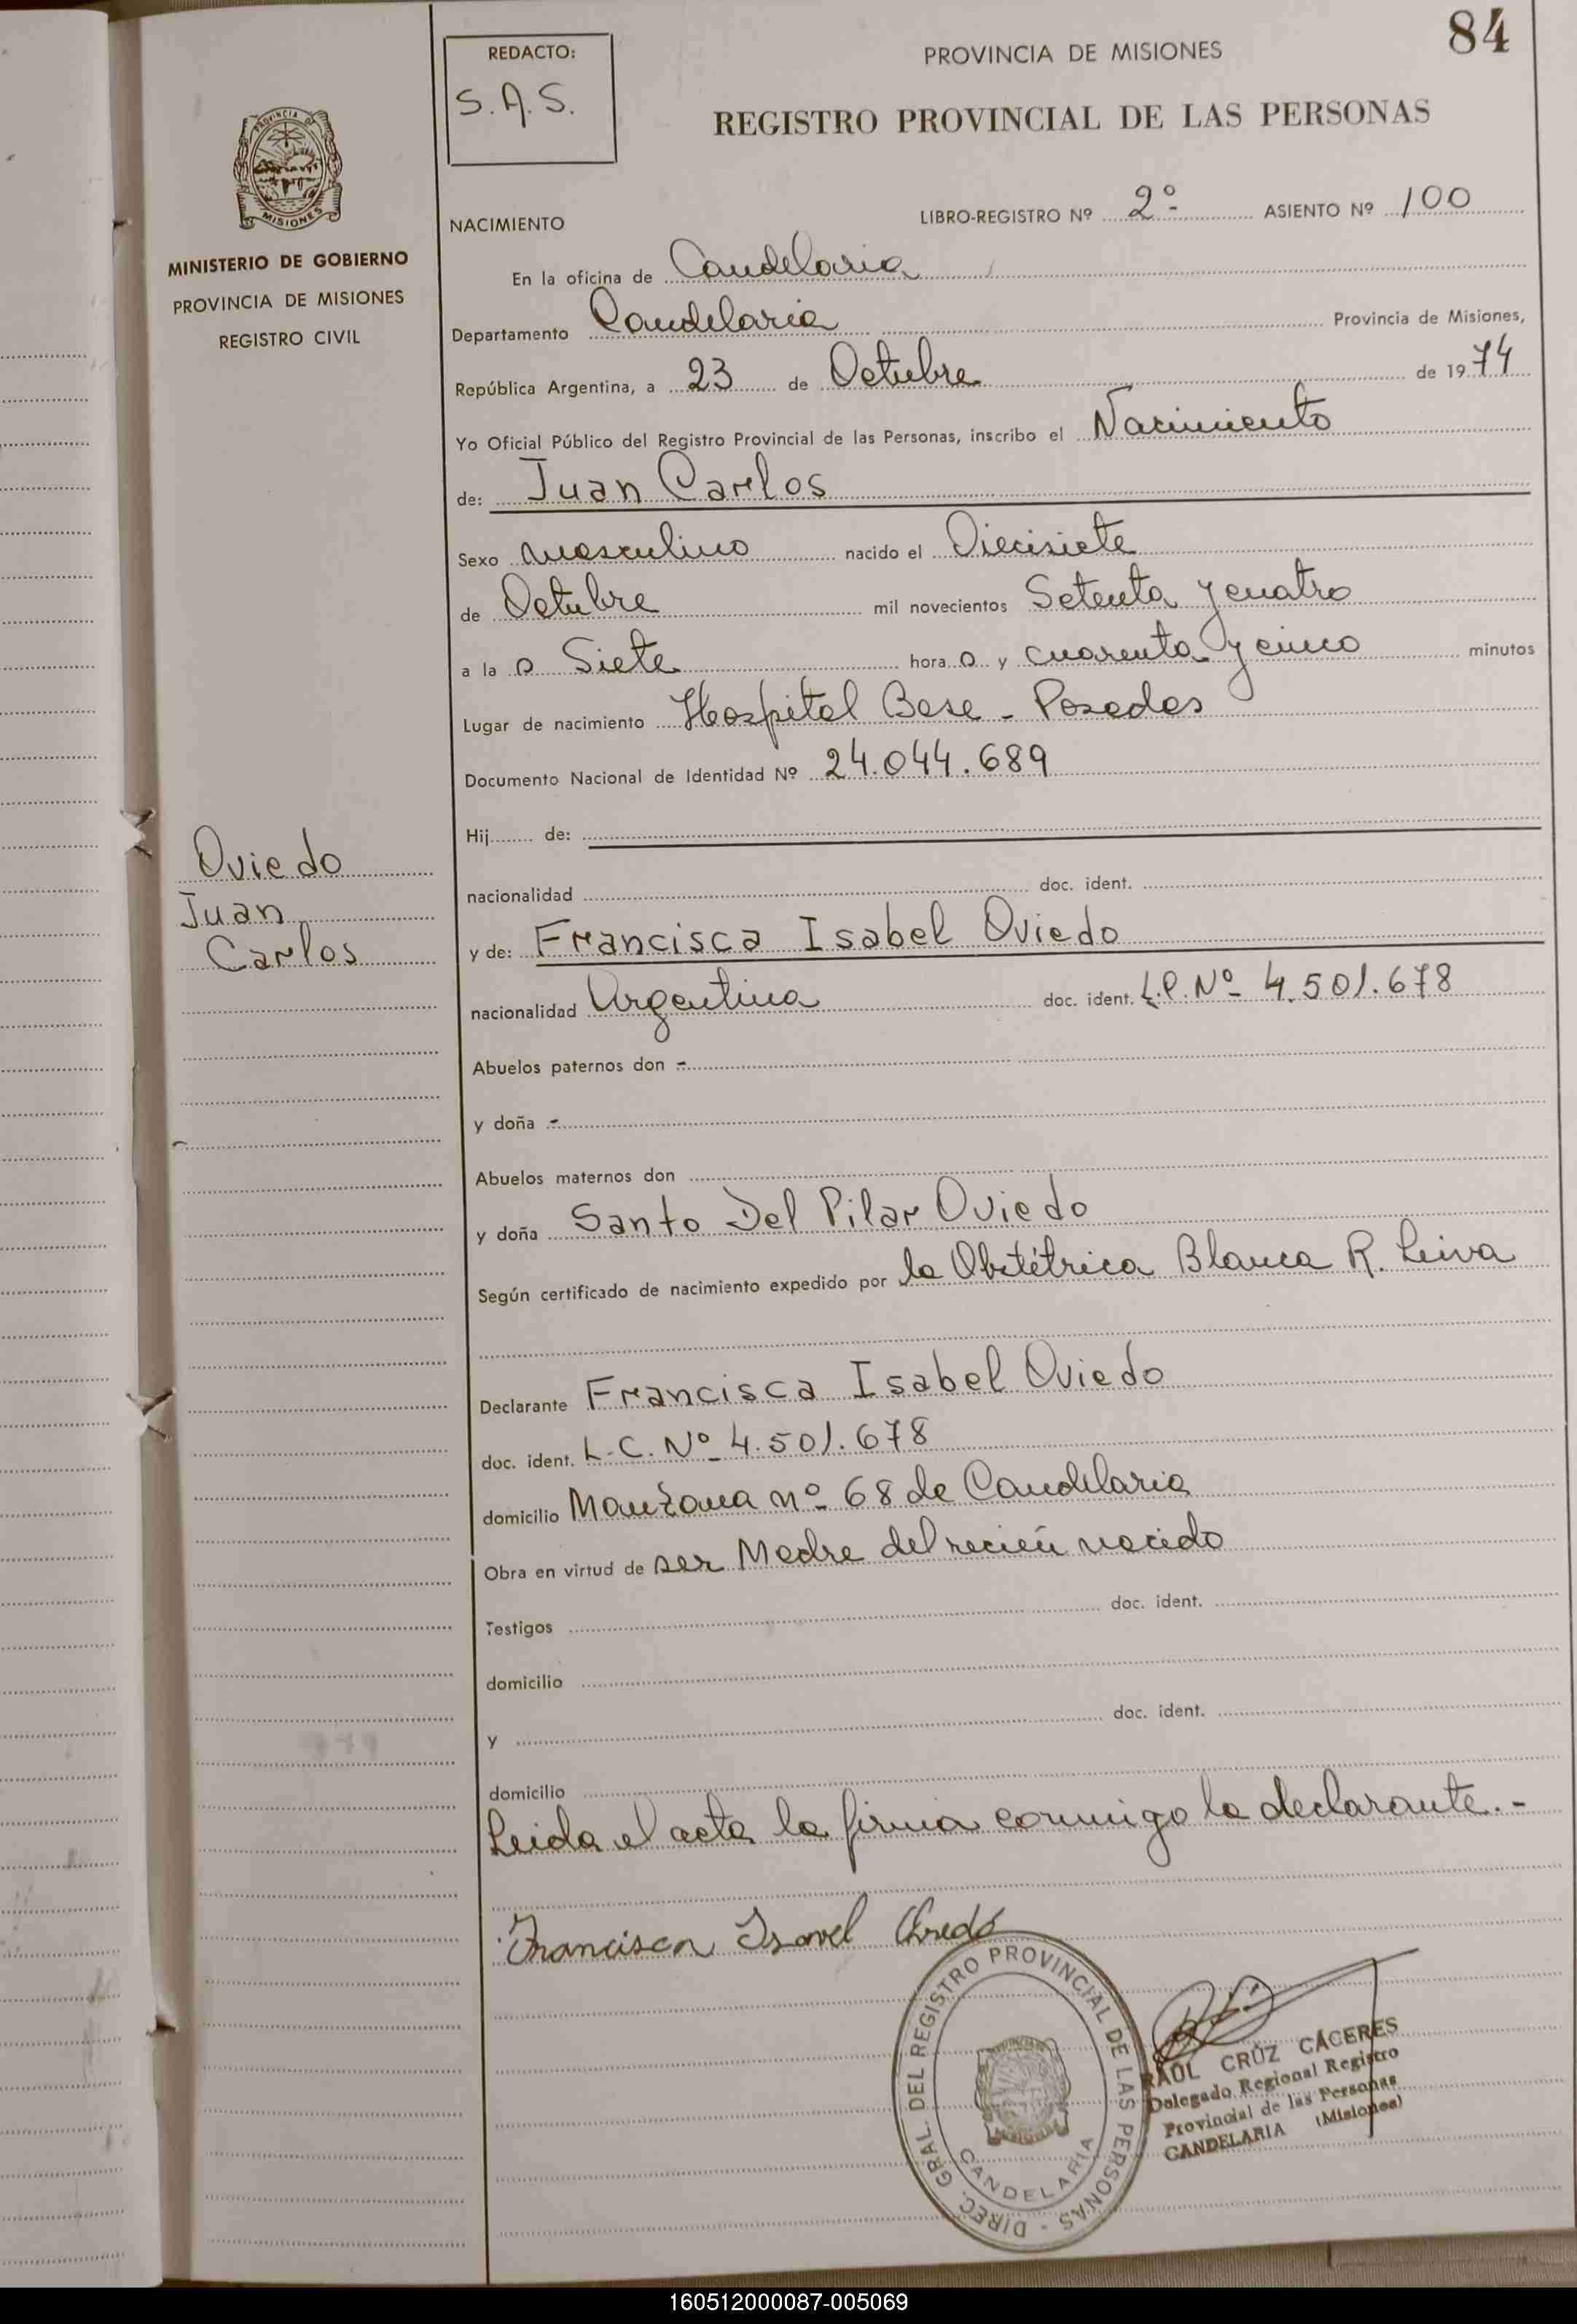 84
REDACTO:
S.A.S.
PROVINCIA DE MISIONES
REGISTRO PROVINCIAL DE LAS PERSONAS
PROVINCIA DE
MISIONES
MINISTERIO DE GOBIERNO
PROVINCIA DE MISIONES
REGISTRO CIVIL
NACIMIENTO
LIBRO-REGISTRO Nº 2º ASIENTO Nº 100
En la oficina de Candelaria
Departamento Candelaria Provincia de Misiones,
República Argentina, a 23 de Octubre de 1974
Yo Oficial Público del Registro Provincial de las Personas, inscribo el Nacimiento
de: Juan Carlos
Sexo masculino nacido el Diecisiete
de Octubre mil novecientos Setenta y cuatro
a la s Siete hora s y cuarenta y cinco minutos
Lugar de nacimiento Hospital Base - Posadas
Documento Nacional de Identidad Nº 24.044.689
Hij de:
nacionalidad doc. ident.
Oviedo
Juan
Carlos
y de: Francisca Isabel Oviedo
nacionalidad Argentina doc. ident. L.C. Nº 4.501.678
Abuelos paternos don -
y doña -
Abuelos maternos don
y doña Santo Del Pilar Oviedo
Según certificado de nacimiento expedido por la Obstétrica Blanca R. Leiva
Declarante Francisca Isabel Oviedo
doc. ident. L.C. Nº 4.501.678
domicilio Manzana nº 68 de Candelaria
Obra en virtud de ser Madre del recién nacido
Testigos doc. ident.
domicilio
y doc. ident.
domicilio
Leida el acta la firma conmigo la declarante.-
Francisca Isavel Ovedo
DIREC. GRAL. DEL REGISTRO PROVINCIAL DE LAS PERSONAS -
CANDELARIA
RAUL CRUZ CACERES
Delegado Regional Registro
Provincial de las Personas
CANDELARIA (Misiones)
160512000087-005069